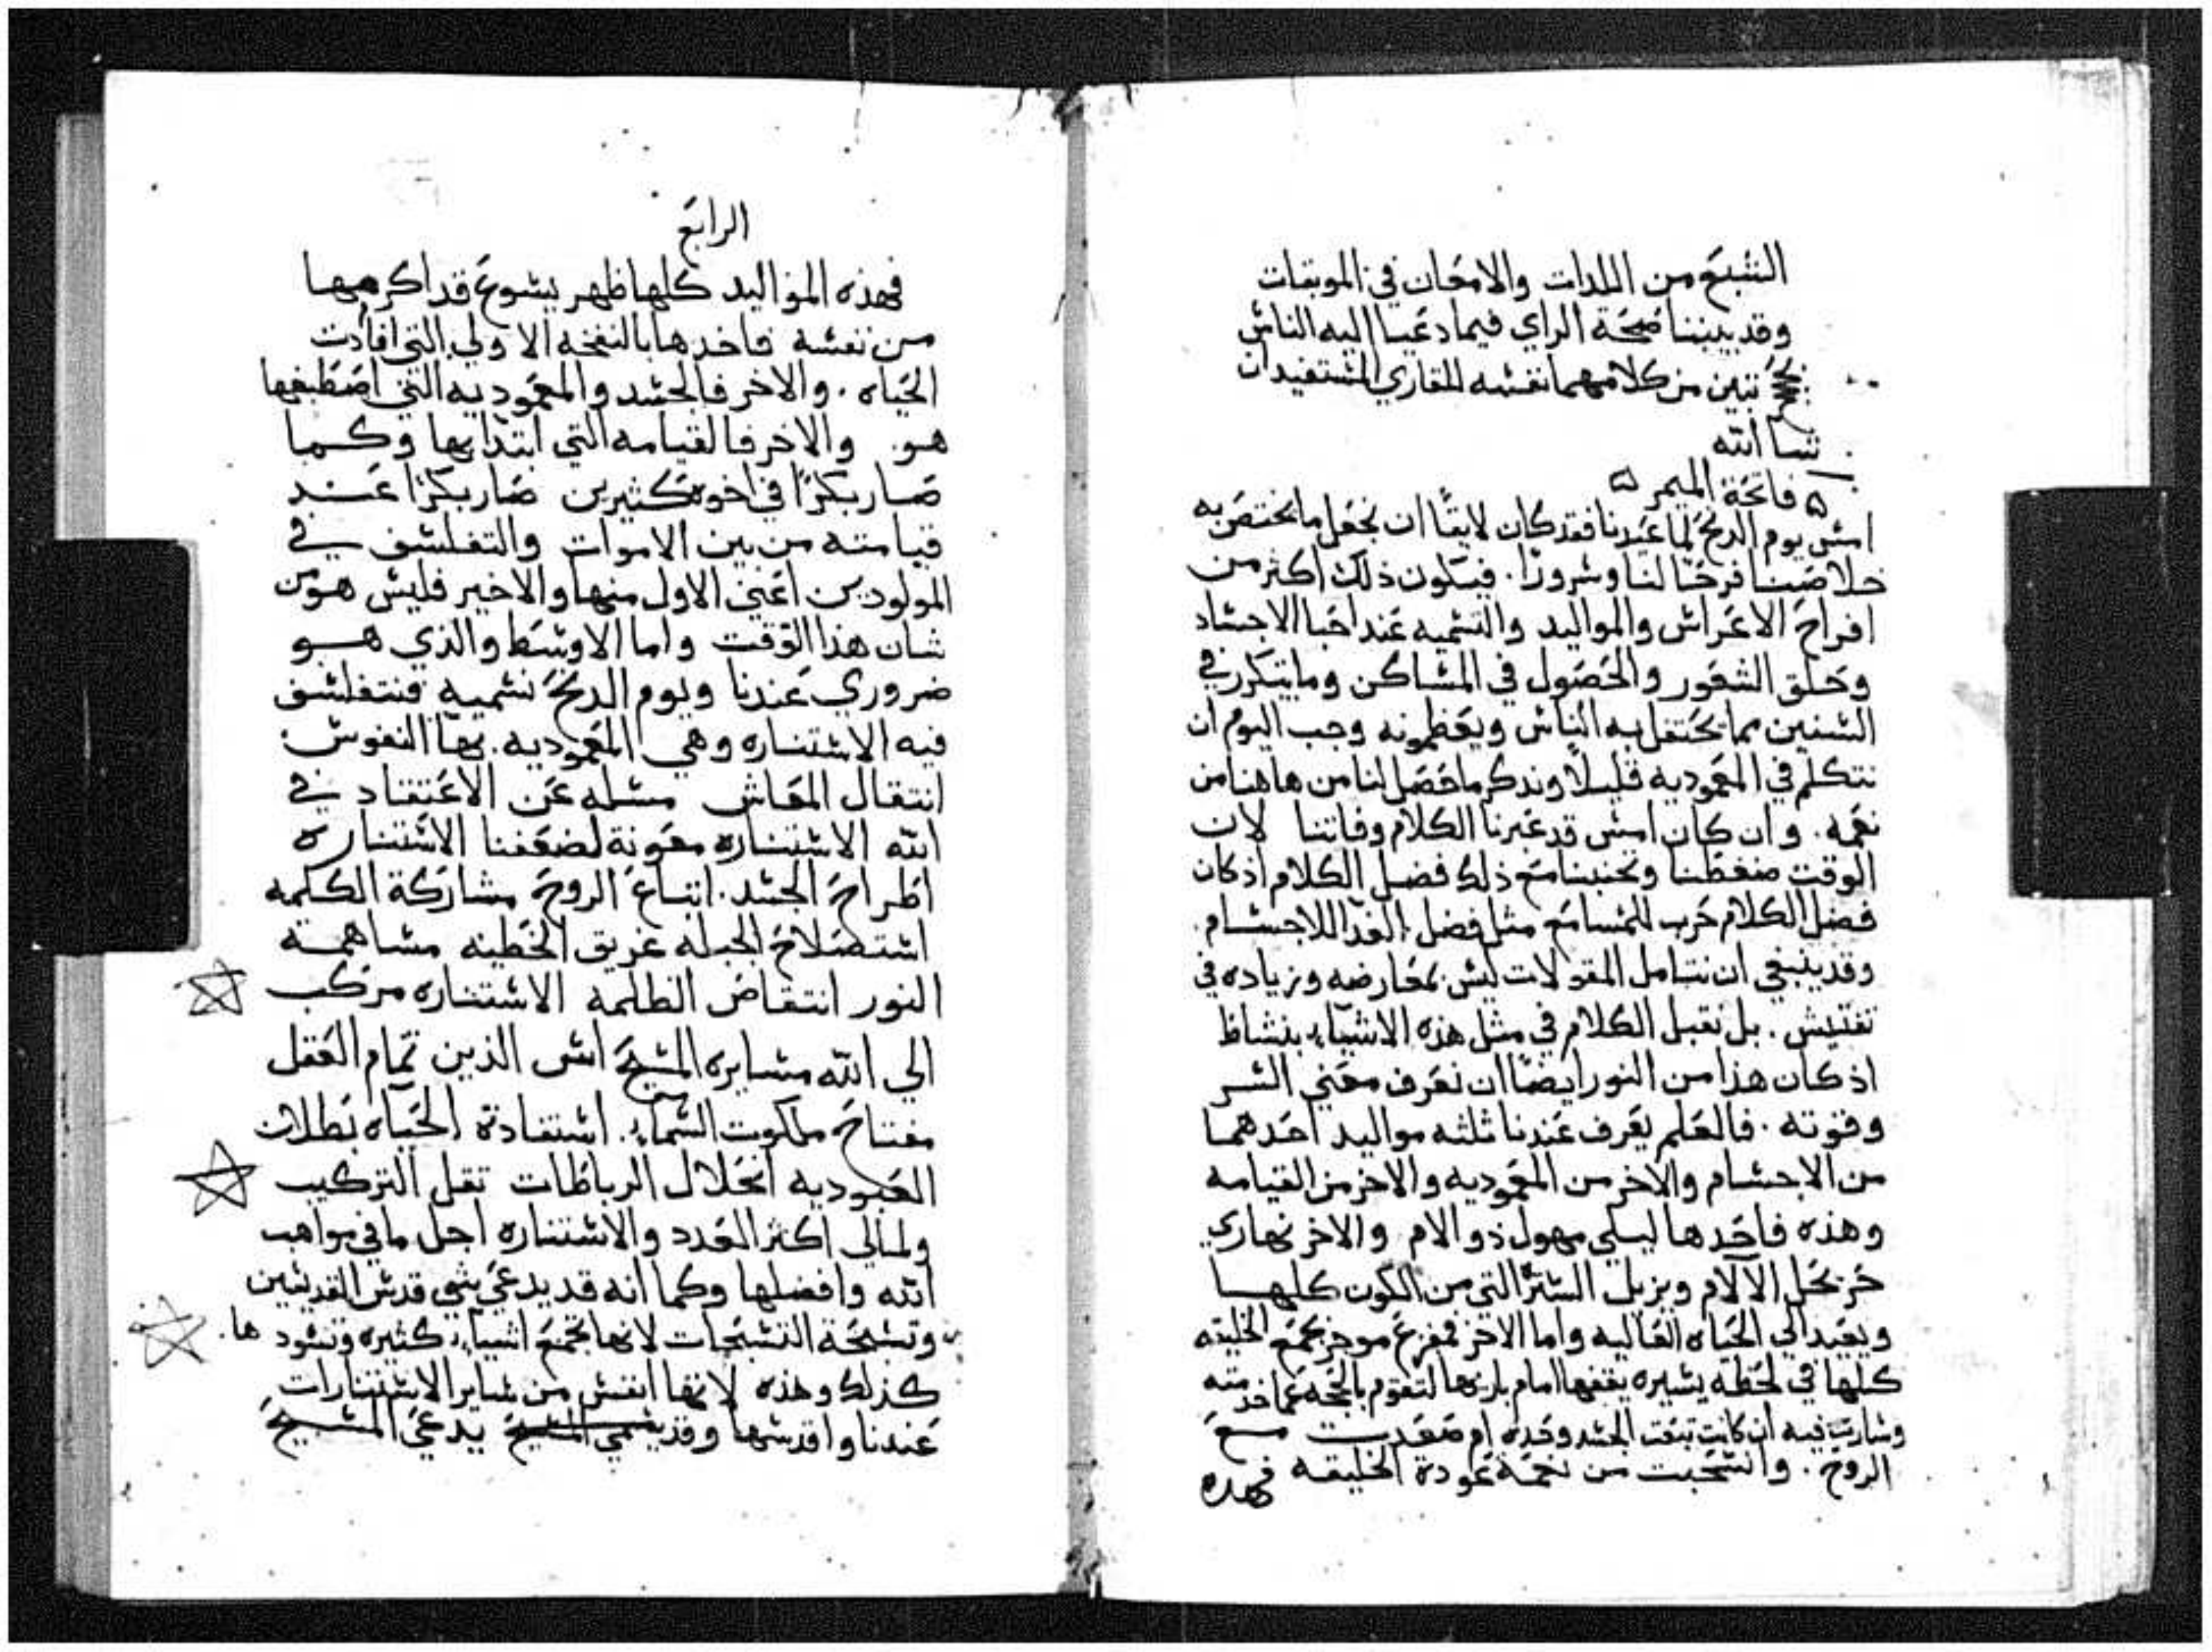 الشبع من اللدات والامعان في الموبقات
وقد بيننا صحة الراي فيما دعيا اليه الناس
تبين من كلامهما نفسه للقاري المستفيد ان
شا الله
فاتحة الميمر
امس يوم الدنح لما عيدنا فقد كان لايقًا ان نجعل ما يختص به
خلاصنا فرحًا لنا وسرورًا. فيكون ذلك اكثر من
افراح الاعراس والمواليد والتسميه عند احبا الاجساد
وحلق الشعور والحصول في المساكن وما يتكرر في
السنين مما يحتفل به الناس ويعظمونه وجب اليوم ان
نتكلم في المعموديه قليلًا ونذكر ما حصل لنا من هاهنا من
نعمه. وان كان امس قد عبرنا الكلام وفاتنا لان
الوقت ضغطنا وتجنبنا مع ذلك فضل الكلام اذ كان
فضل الكلام حرب للمسامع مثل فضل الغدا للاجسام.
وقد ينبغي ان نتامل المقولات ليس بمعارضه وزياده في
تفتيش. بل نقبل الكلام في مثل هذه الاشياء بنشاط
اذ كان هذا من النور ايضًا ان نعرف معني السر
وقوته. فالعلم يعرف عندنا ثلثه مواليد احدهما
من الاجسام والاخر من المعموديه والاخر من القيامه
وهذه فاحدها ليلي مهول ذو الام والاخر نهاري
حر يحل الآلام ويزيل الستر التي من الكون كلها
ويعيد الي الحياه العاليه واما الاخر فمفزع موجز يجمع الخليقه
كلها في لحظه يسيره يقفها امام باريها لتقوم بالحجه عما خدمته
وسارت فيه ان كانت تبعت الجسد وحده ام صعدت مع
الروح. وانسحبت من نعمة عودة الخليقه فهذه
الرابع
فهذه المواليد كلها ظهر يسوع قد اكرمها
من نفسه فاخدها بالنفخه الاولي التي افادت
الحياه. والاخر فالجسد والمعموديه التي اصطبغها
هو. والاخر فالقيامه التي ابتدا بها وكما
صار بكرًا في اخوه كثيرين صار بكرًا عند
قيامته من بين الاموات والتفلسف في
المولودين اعني الاول منها والاخير فليس هو من
شان هذا الوقت واما الاوسط والذي هو
ضروري عندنا ويوم الدنح نسميه فنتفلسف
فيه الاستناره وهي المعموديه. بها النفوس
انتقال المعاش مسله عن الاعتقاد في
الله الاستناره معونة لضعفنا الاستناره
اطراح الجسد. اتباع الروح مشاركة الكلمه
استصلاح الجبله غريق الخطيه مساهمة
النور انتقاض الظلمه الاستناره مركب
الي الله مسايره المسيح اس الذين تمام العقل
مفتاح ملكوت السماء. استفادة الحياه بطلان
العبوديه انحلال الرباطات نقل التركيب
ولمالي اكثر العدد والاستناره اجل ما في مواهب
الله وافضلها وكما انه قد يدعي شي قدس القديسين
وتسبحة التسبحات لانها تجمع اشياء كثيره وتسودها.
كذلك وهذه لانها انفس من ساير الاستنارات
عندنا واقدسها وقد يسمي المسيح يدعي المسيح